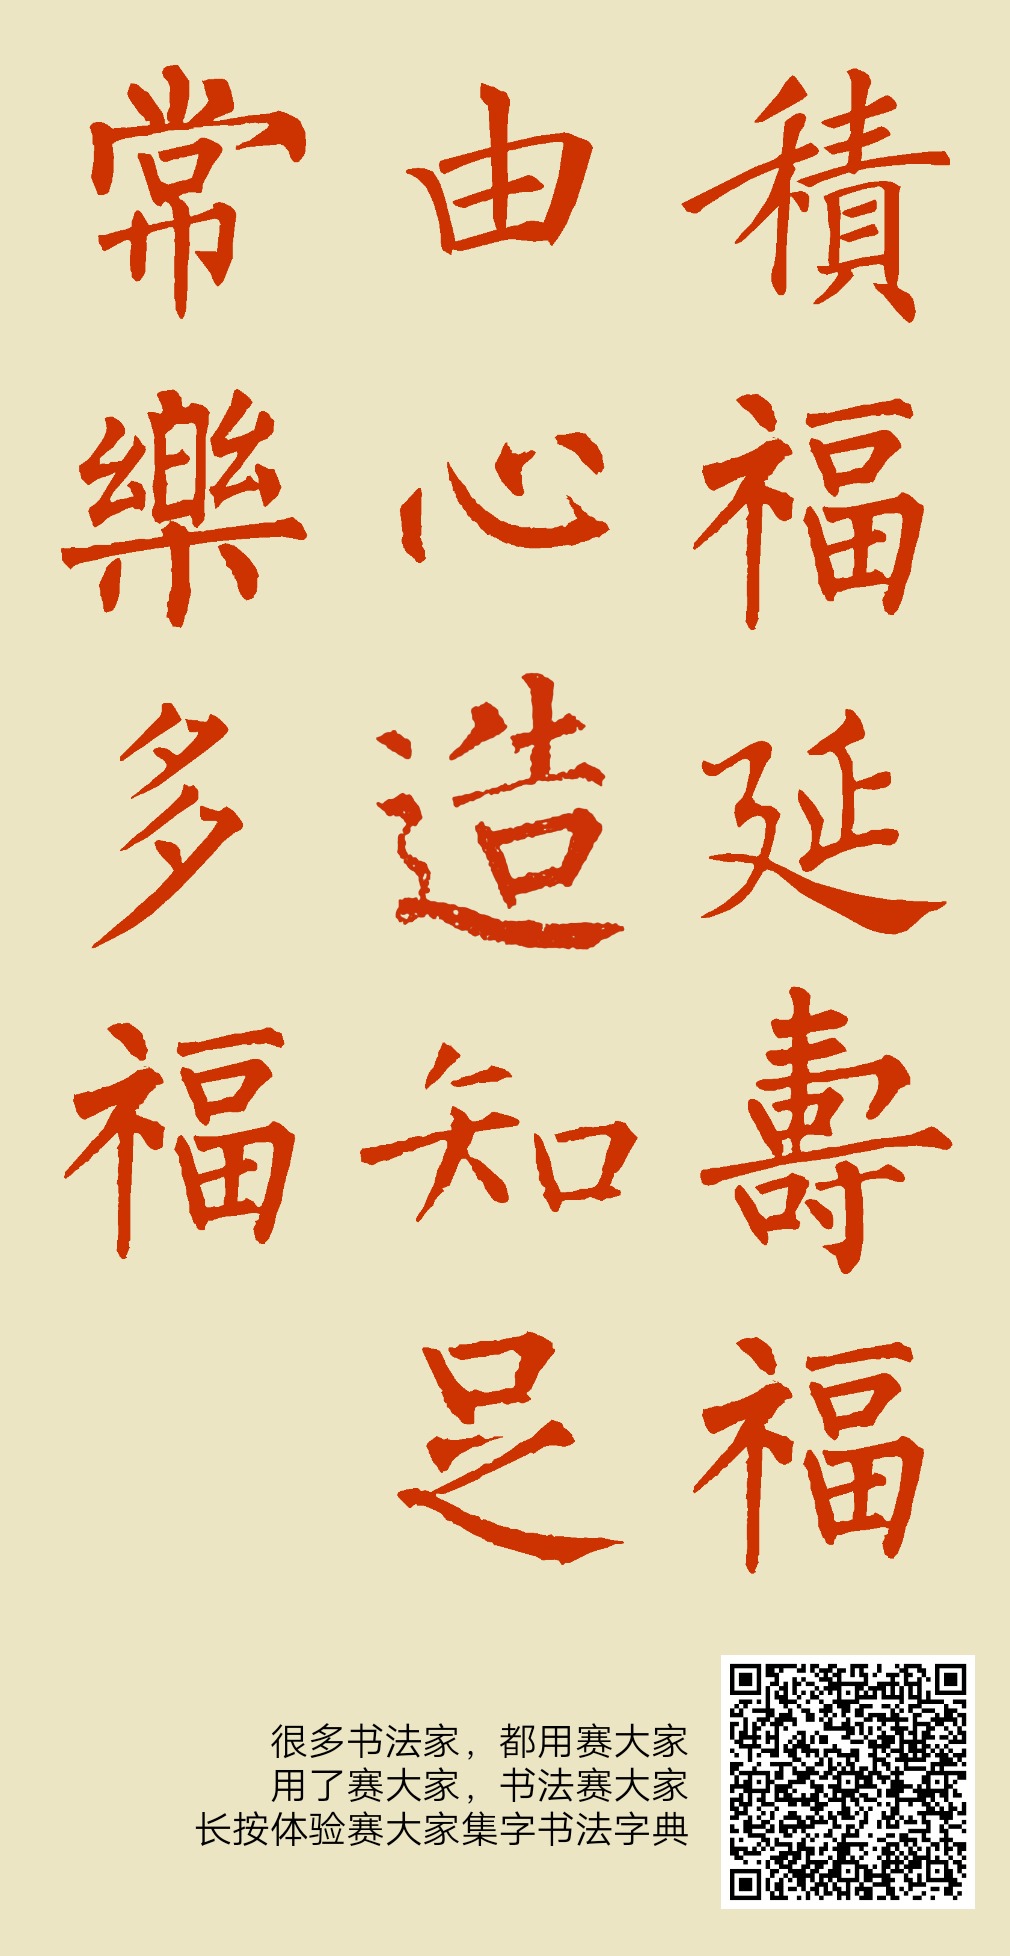 積福延壽福
由心造知足
常樂多福
很多书法家，都用赛大家
用了赛大家，书法赛大家
长按体验赛大家集字书法字典